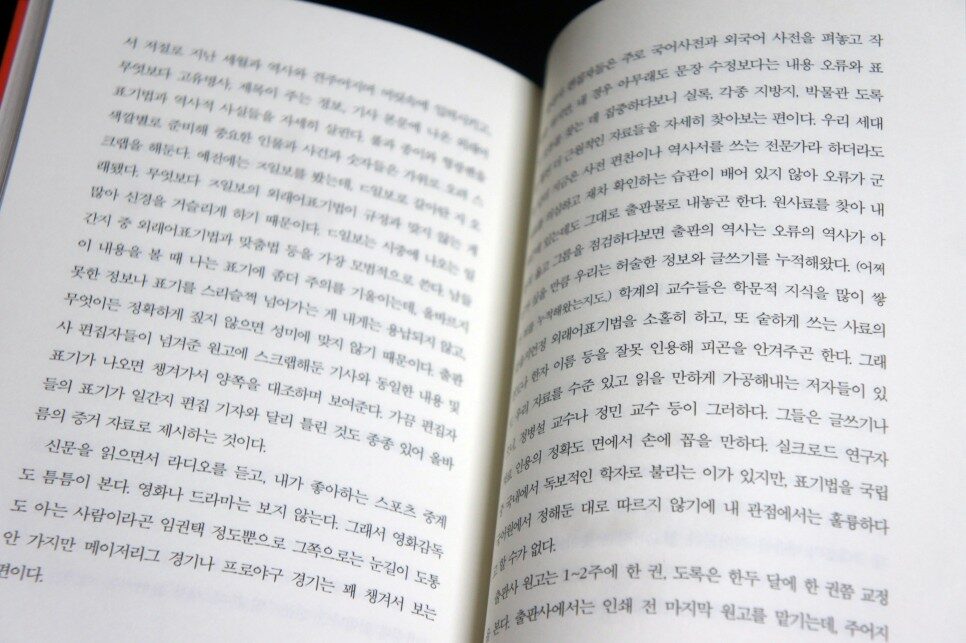 서 저절로 지난 세월과 역사와 견주어지며 머릿속에 입력시키고,
무엇보다 고유명사, 제목이 주는 정보, 기사 본문에 나온 외래어
표기법과 역사적 사실들을 자세히 살핀다. 풀과 종이와 형광펜을
색깔별로 준비해 중요한 인물과 사건과 숫자들은 가위로 오려 스
크랩을 해둔다. 예전에는 ㅈ일보를 봤는데, ㄷ일보로 갈아탄 지 오
래됐다. 무엇보다 ㅈ일보의 외래어표기법이 규정과 맞지 않는 게
많아 신경을 거슬리게 하기 때문이다. ㄷ일보는 시중에 나오는 일
간지 중 외래어표기법과 맞춤법 등을 가장 모범적으로 쓴다. 남들
이 내용을 볼 때 나는 표기에 좀더 주의를 기울이는데, 올바르지
못한 정보나 표기를 스리슬쩍 넘어가는 게 내게는 용납되지 않고,
무엇이든 정확하게 짚지 않으면 성미에 맞지 않기 때문이다. 출판
사 편집자들이 넘겨준 원고에 스크랩해둔 기사와 동일한 내용 및
표기가 나오면 챙겨가서 양쪽을 대조하며 보여준다. 가끔 편집자
들의 표기가 일간지 편집 기자와 달리 틀린 것도 종종 있어 올바
름의 증거 자료로 제시하는 것이다.
신문을 읽으면서 라디오를 듣고, 내가 좋아하는 스포츠 중계
도 틈틈이 본다. 영화나 드라마는 보지 않는다. 그래서 영화감독
도 아는 사람이라곤 임권택 정도뿐으로 그쪽으로는 눈길이 도통
안 가지만 메이저리그 경기나 프로야구 경기는 꽤 챙겨서 보는
편이다.
주로 국어사전과 외국어 사전을 펴놓고 작
내 경우 아무래도 문장 수정보다는 내용 오류와 표
찾는 데 집중하다보니 실록, 각종 지방지, 박물관 도록
근원적인 자료들을 자세히 찾아보는 편이다. 우리 세대
지금은 사전 편찬이나 역사서를 쓰는 전문가라 하더라도
의심하고 재차 확인하는 습관이 배어 있지 않아 오류가 군
있는데도 그대로 출판물로 내놓곤 한다. 원사료를 찾아 내
옮고 그름을 점검하다보면 출판의 역사는 오류의 역사가 아
싶을 만큼 우리는 허술한 정보와 글쓰기를 누적해왔다. (어쩌
누적해왔는지도.) 학계의 교수들은 학문적 지식을 많이 쌓
외래어표기법을 소홀히 하고, 또 숱하게 쓰는 사료의
한자 이름 등을 잘못 인용해 피곤을 안겨주곤 한다. 그래
우리 자료를 수준 있고 읽을 만하게 가공해내는 저자들이 있
정병설 교수나 정민 교수 등이 그러하다. 그들은 글쓰기나
인용의 정확도 면에서 손에 꼽을 만하다. 실크로드 연구자
국내에서 독보적인 학자로 불리는 이가 있지만, 표기법을 국립
국어원에서 정해둔 대로 따르지 않기에 내 관점에서는 훌륭하다
할 수가 없다.
출판사 원고는 1~2주에 한 권, 도록은 한두 달에 한 권쯤 교정
을 본다. 출판사에서는 인쇄 전 마지막 원고를 맡기는데, 주어지